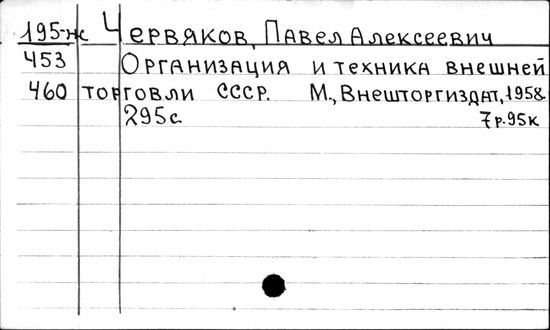 195-ж Червяков, Павел Алексеевич
453 Организация и техника внешней
460 торговли СССР. М., Внешторгиздат, 1958.
295с. 7р.95к